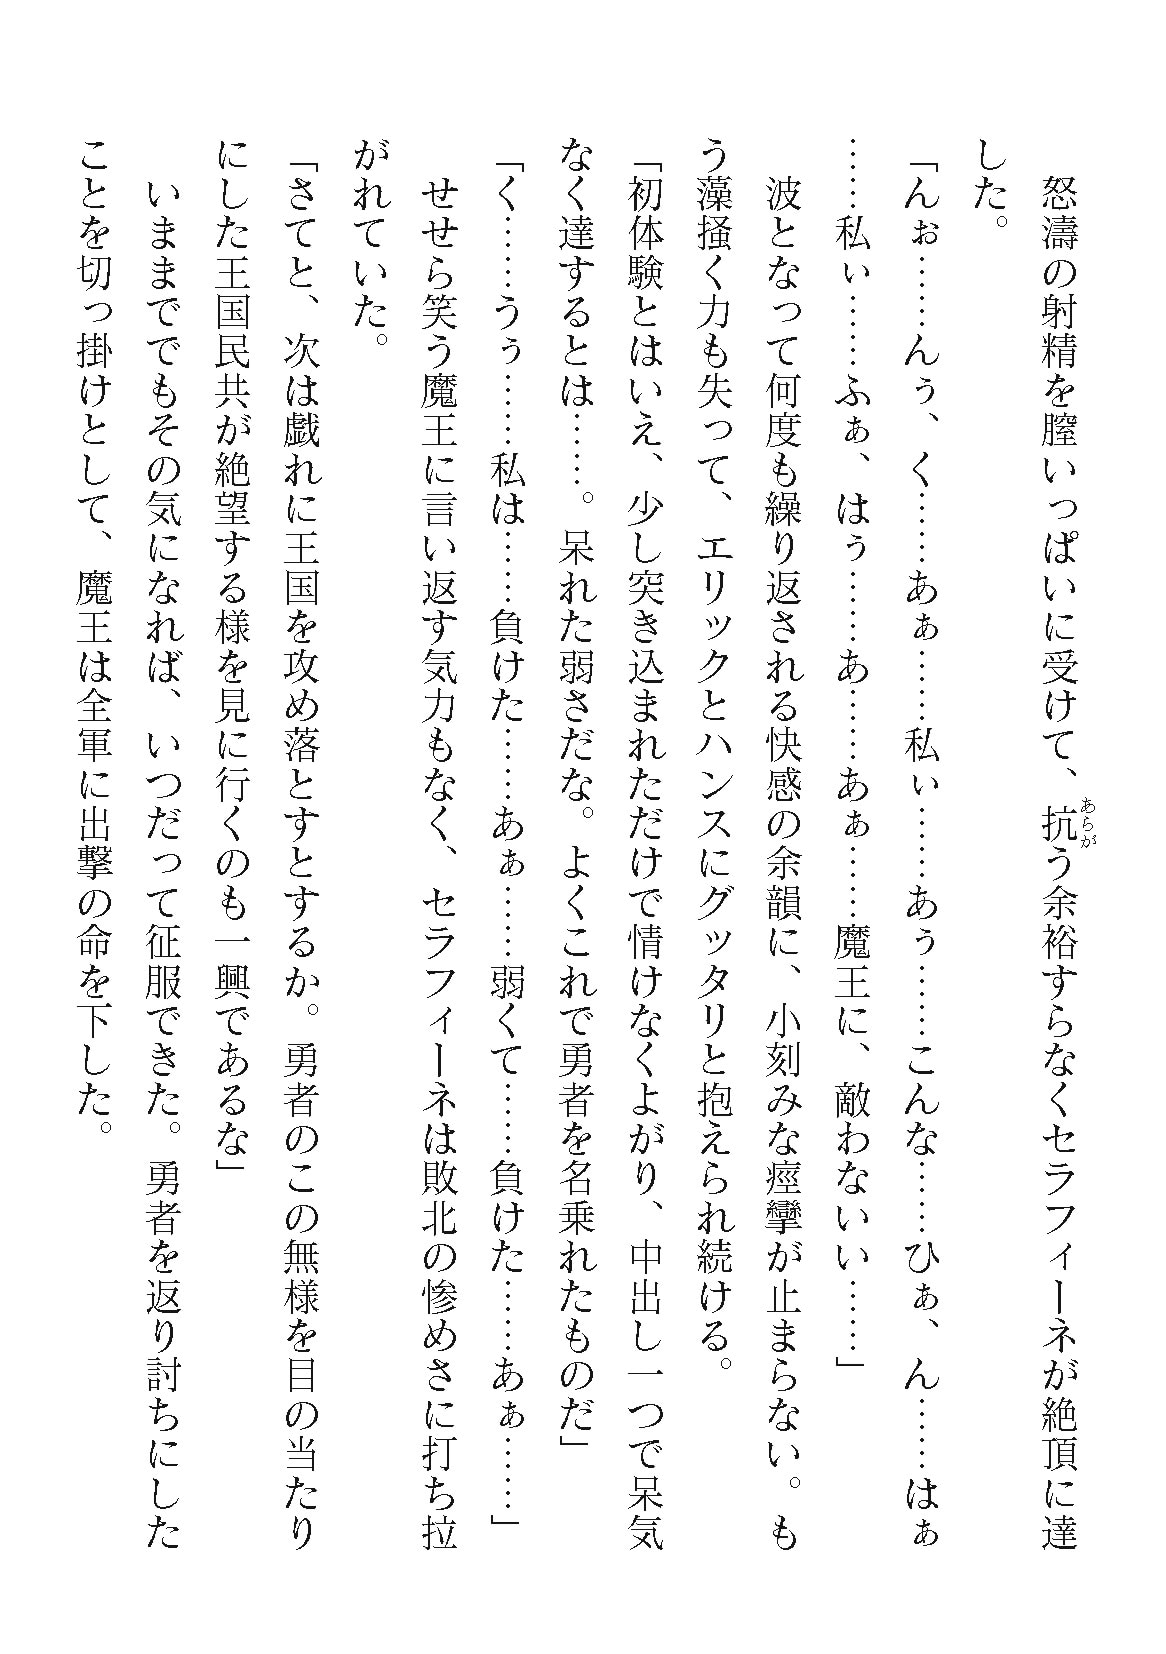 怒濤の射精を膣いっぱいに受けて、抗う余裕すらなくセラフィーネが絶頂に達
あらが
した。
「んぉ……んぅ、く……あぁ……私ぃ……あぅ……こんな……ひぁ、ん……はぁ
……私ぃ……ふぁ、はぅ……あ……あぁ……魔王に、敵わないい……」
波となって何度も繰り返される快感の余韻に、小刻みな痙攣が止まらない。も
う藻掻く力も失って、エリックとハンスにグッタリと抱えられ続ける。
「初体験とはいえ、少し突き込まれただけで情けなくよがり、中出し一つで呆気
なく達するとは……。呆れた弱さだな。よくこれで勇者を名乗れたものだ」
「く……うぅ……私は……負けた……あぁ……弱くて……負けた……あぁ……」
せせら笑う魔王に言い返す気力もなく、セラフィーネは敗北の惨めさに打ち拉
がれていた。
「さてと、次は戯れに王国を攻め落とすとするか。勇者のこの無様を目の当たり
にした王国民共が絶望する様を見に行くのも一興であるな」
いままででもその気になれば、いつだって征服できた。勇者を返り討ちにした
ことを切っ掛けとして、魔王は全軍に出撃の命を下した。